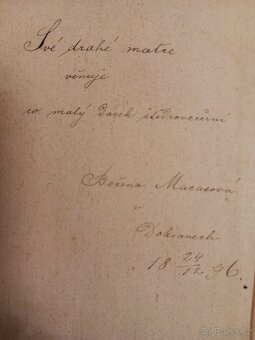 Své drahé matce
věnuje
co malý dárek štědrovečerní
Božena Macasová
v
Doksanech
18 24/12 96.